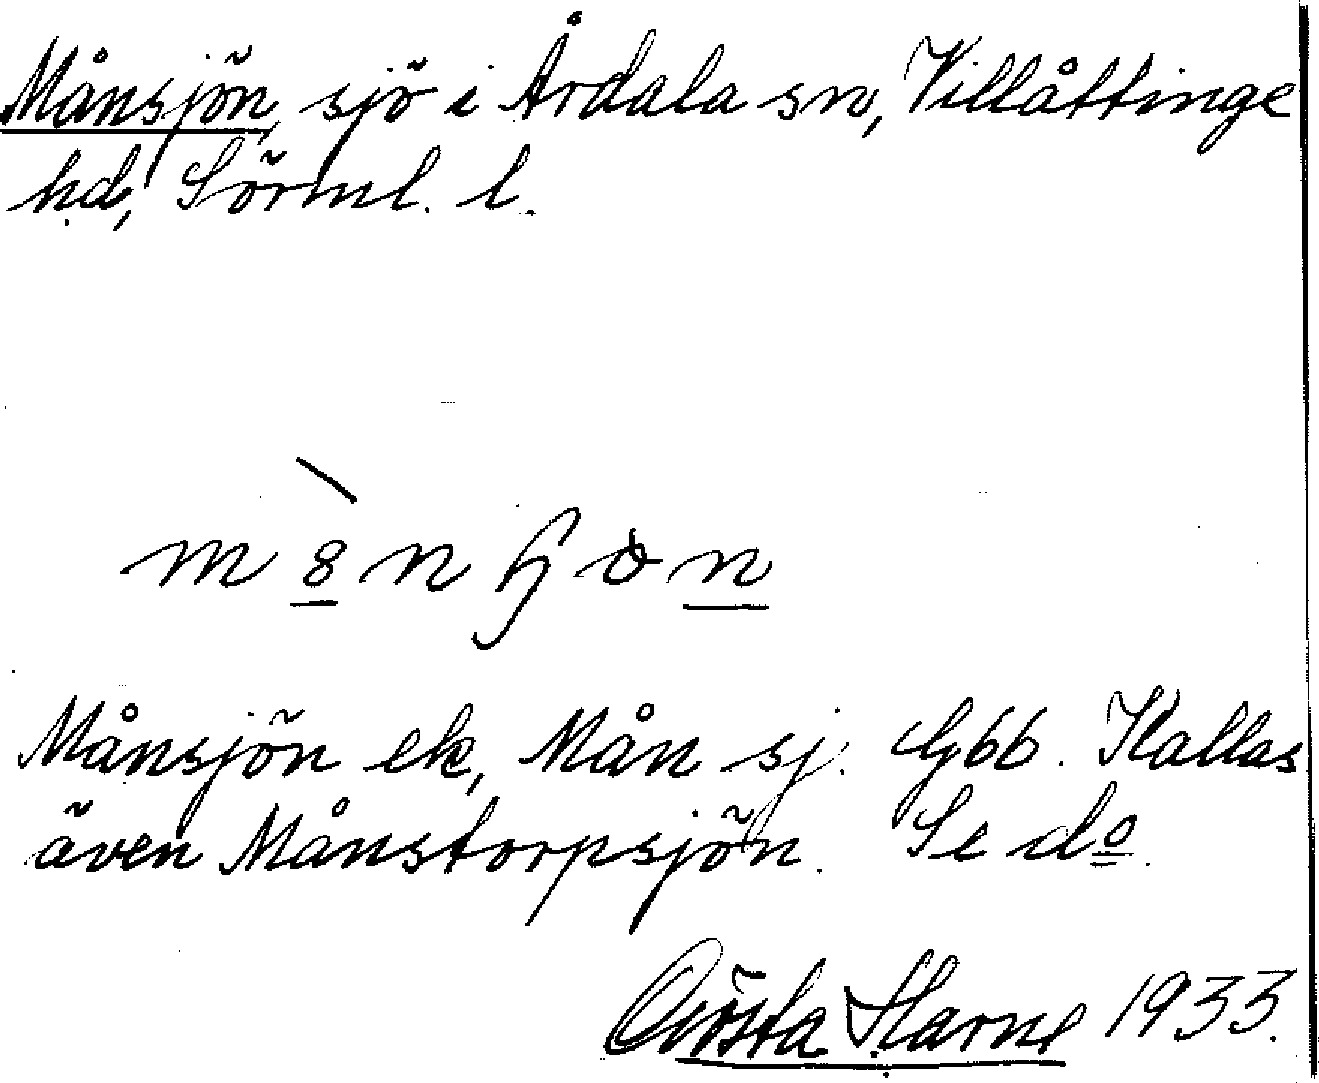 Månsjön, sjö i Årdala sn, Villåttinge
hd, Sörml. l.
Månsjön ek, Mån sj. Gbb. Kallas
även Månstorpsjön. Se do.
Gösta 1933.